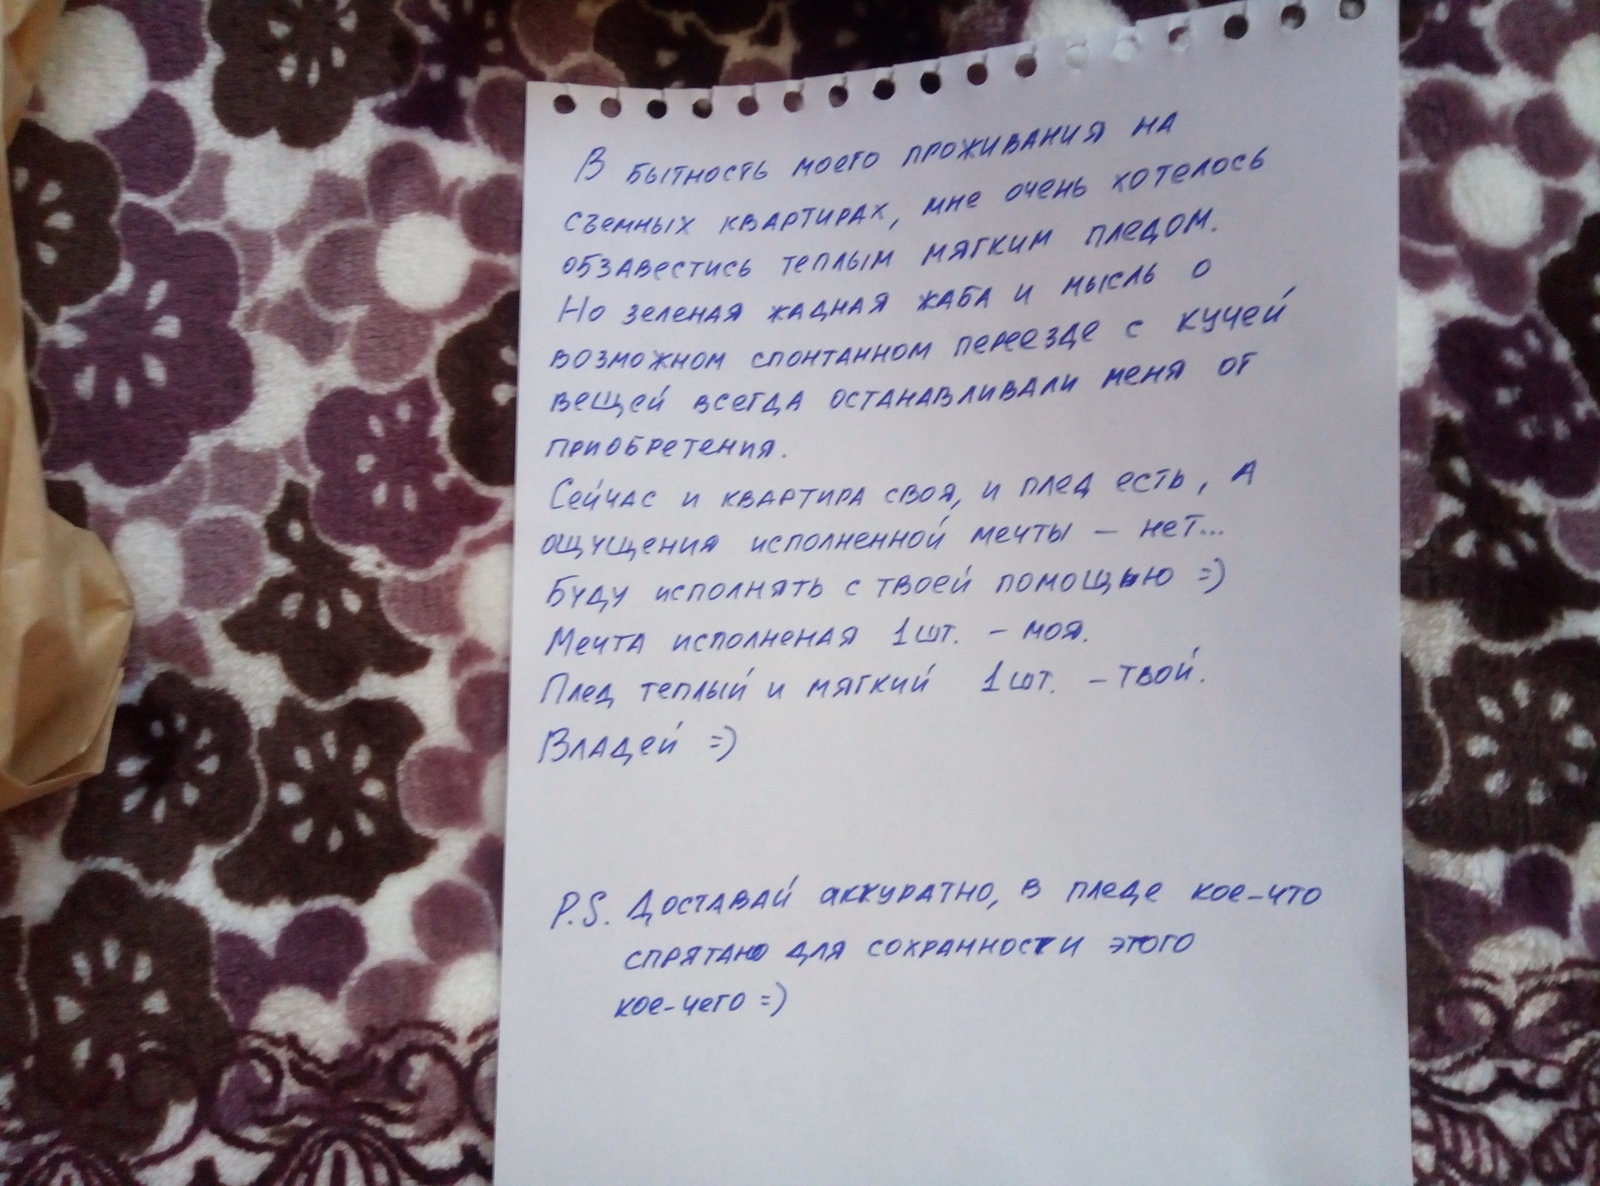 В бытность моего проживания на
съемных квартирах, мне очень хотелось
обзавестись теплым мягким пледом.
Но зеленая жадная жаба и мысль о
возможном спонтанном переезде с кучей
вещей всегда останавливали меня от
приобретения.
Сейчас и квартира своя, и плед есть, а
ощущения исполненной мечты – нет...
Буду исполнять с твоей помощью =)
Мечта исполненая 1 шт. – моя.
Плед теплый и мягкий 1 шт. – твой.
Владей =)
P.S. Доставай аккуратно, в пледе кое-что
спрятано для сохранности этого
кое-чего =)